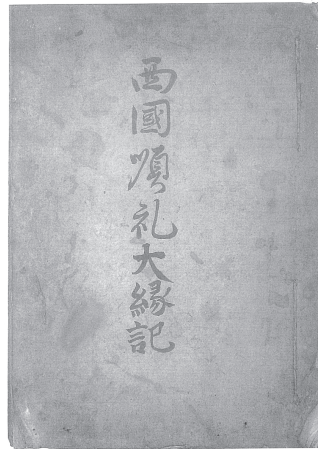 西國順礼大縁記